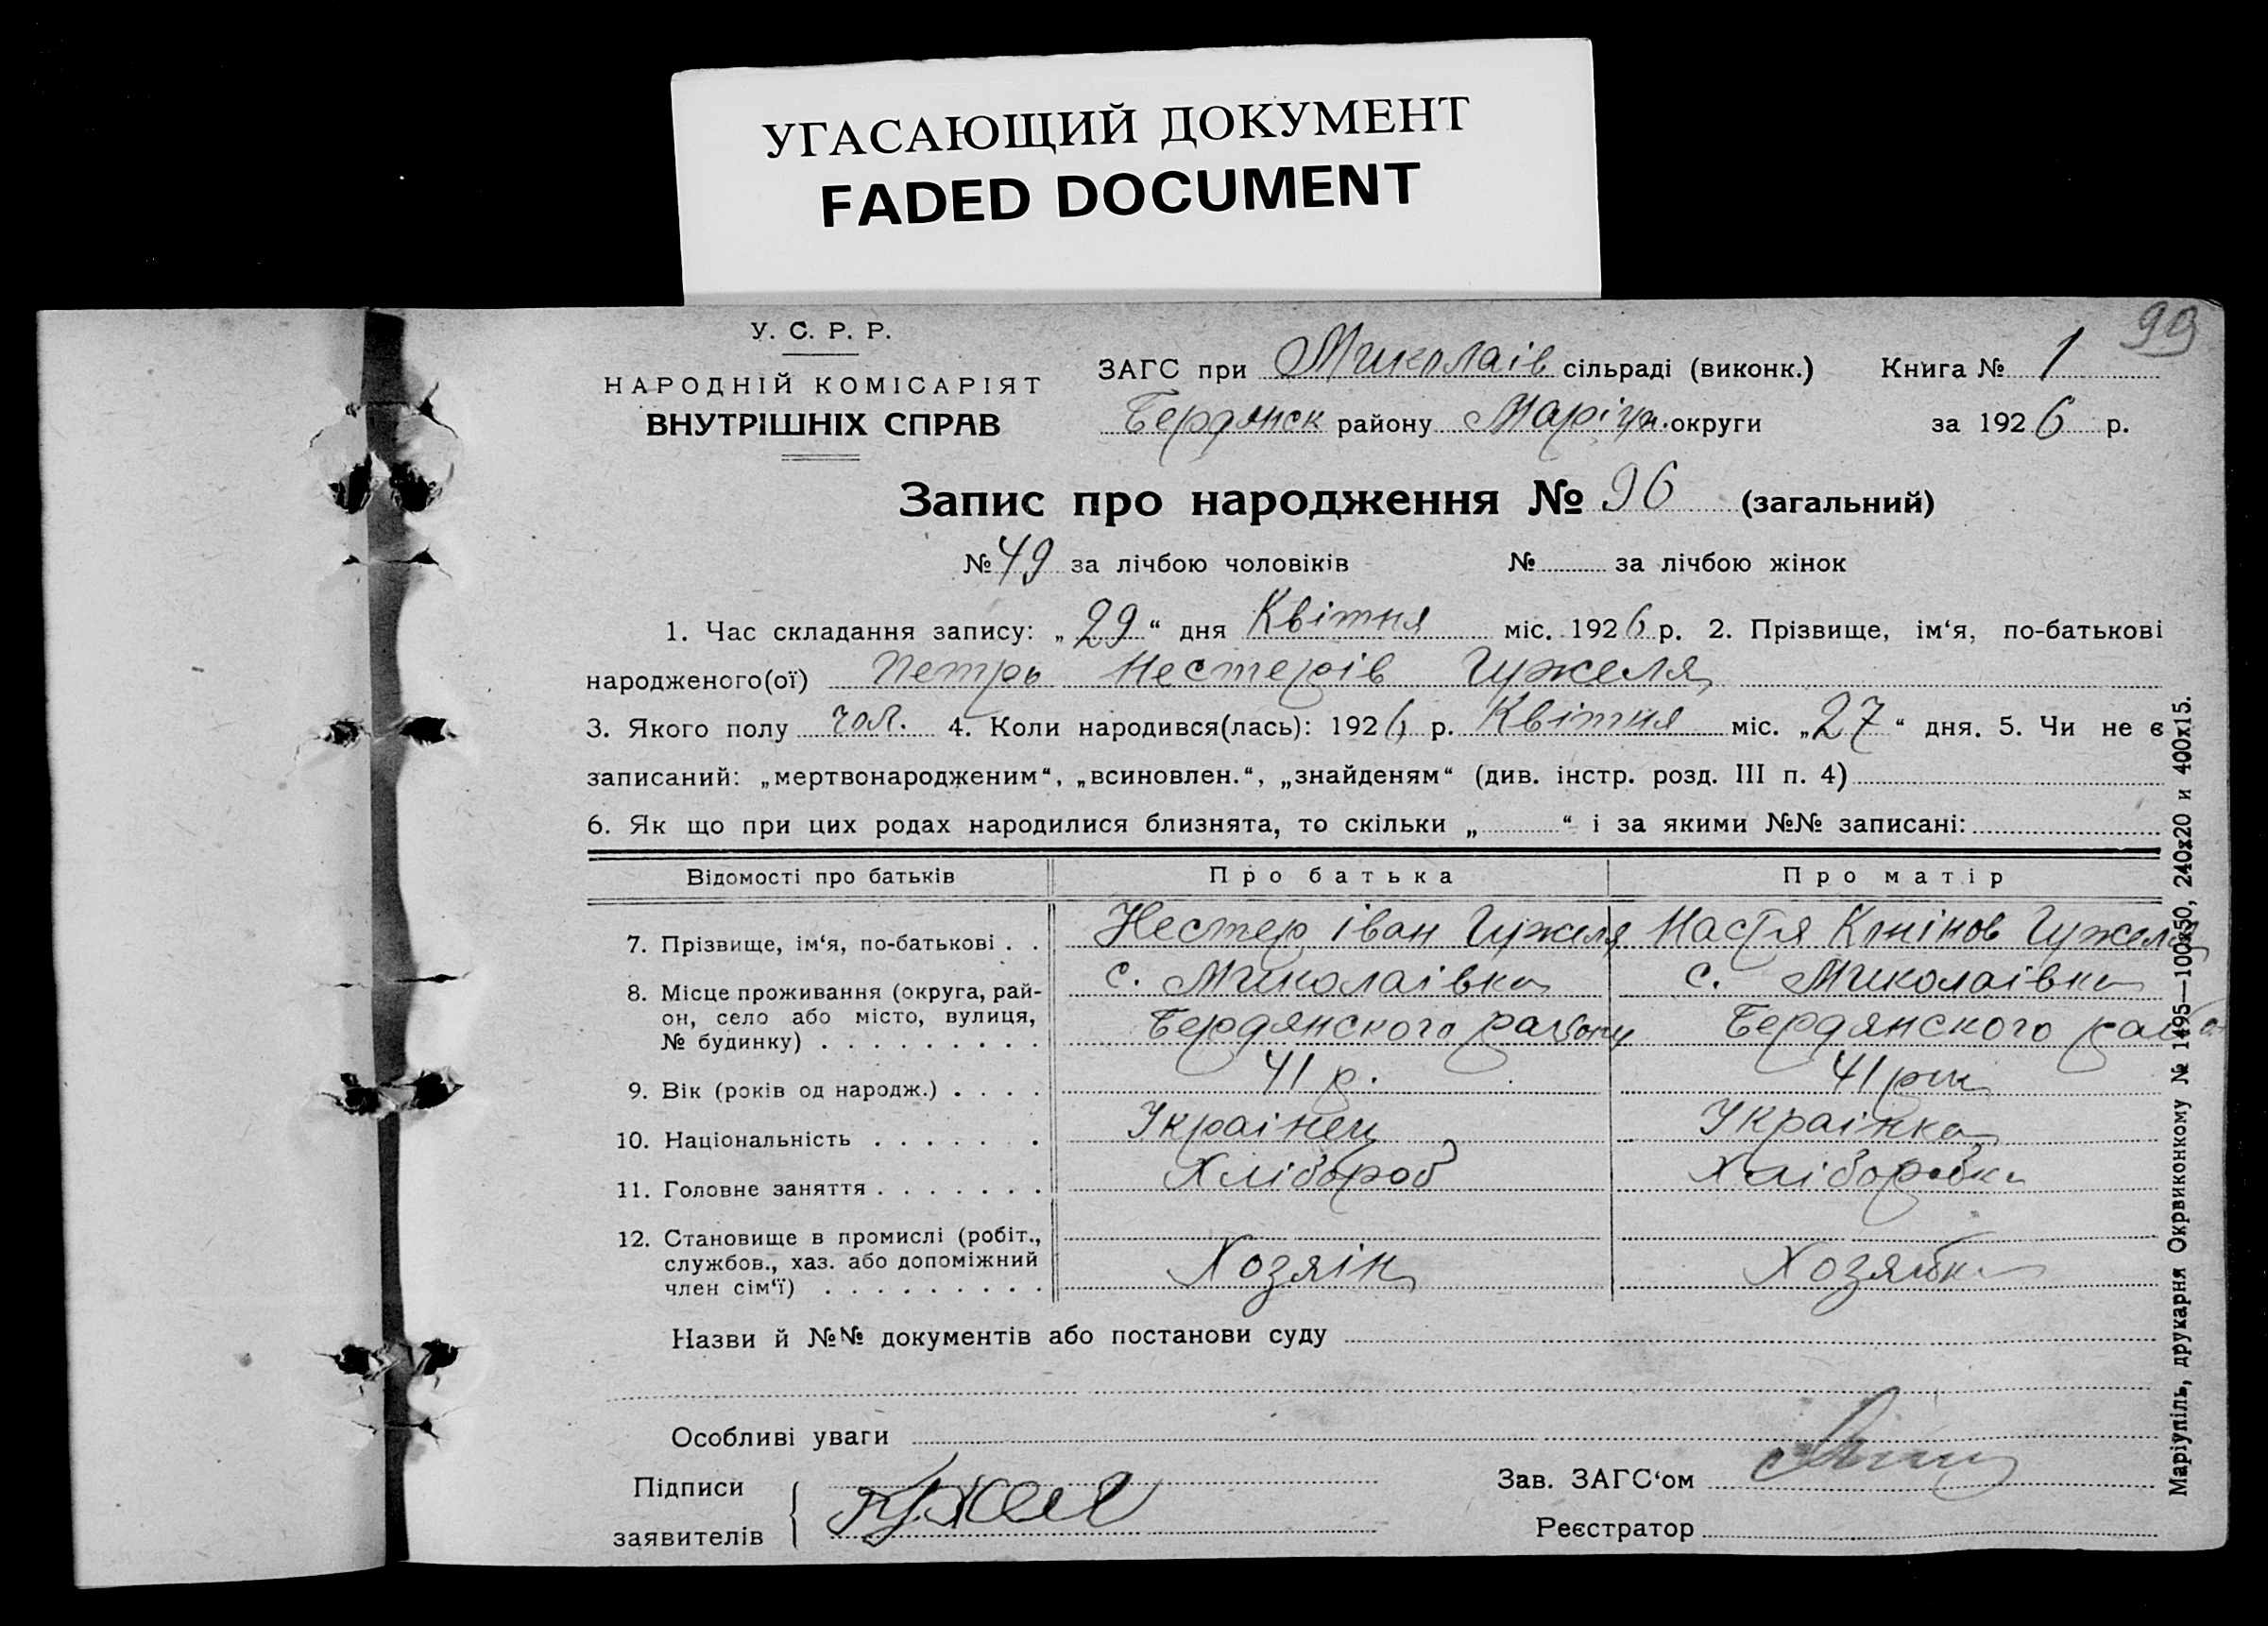 УГАСАЮЩИЙ ДОКУМЕНТ
FADED DOCUMENT
99
У. С. Р. Р.
НАРОДНІЙ КОМІСАРІЯТ
ВНУТРІШНІХ СПРАВ
ЗАГС при Миколаів сільраді (виконк.) Книга № 1
Бердянск району Маріуп. округи за 1926 р.
Запис про народження № 96 (загальний)
№ 49 за лічбою чоловіків № за лічбою жінок
1. Час складання запису: „29“ дня Квітня міс. 1926 р. 2. Прізвище, ім‘я, по-батькові
народженого(ої) Петрь Нестерів Гужеля
3. Якого полу чол. 4. Коли народився(лась): 1926 р. Квітня міс. „27“ дня. 5. Чи не є
записаний: „мертвонародженим“, „всиновлен.“, „знайденям“ (див. інстр. розд. III п. 4)
6. Як що при цих родах народилися близнята, то скільки „ “ і за якими №№ записані:
Відомості про батьків Про батька Про матір
7. Прізвище, ім‘я, по-батькові . . Нестер Іван Гужеля Настя Гужеля
8. Місце проживання (округа, рай- с. Миколаівка с. Миколаівка
он, село або місто, вулиця, Бердянского району Бердянского
№ будинку) . . . . . . . . .
9. Вік (років од народж.) . . . . 41 р. 41 рік
10. Національність . . . . . . . Украінец Украінка
11. Головне заняття . . . . . . . Хлібороб Хліборобка
12. Становище в промислі (робіт.,
службов., хаз. або допоміжний Хозяін Хозяйка
член сім‘ї) . . . . . . . . .
Назви й №№ документів або постанови суду
Особливі уваги
Підписи
заявителів
Гужеля
Зав. ЗАГС‘ом
Реєстратор
Маріупіль, друкарня Окрвиконкому № 1495—100х50, 240х20 и 400х15.